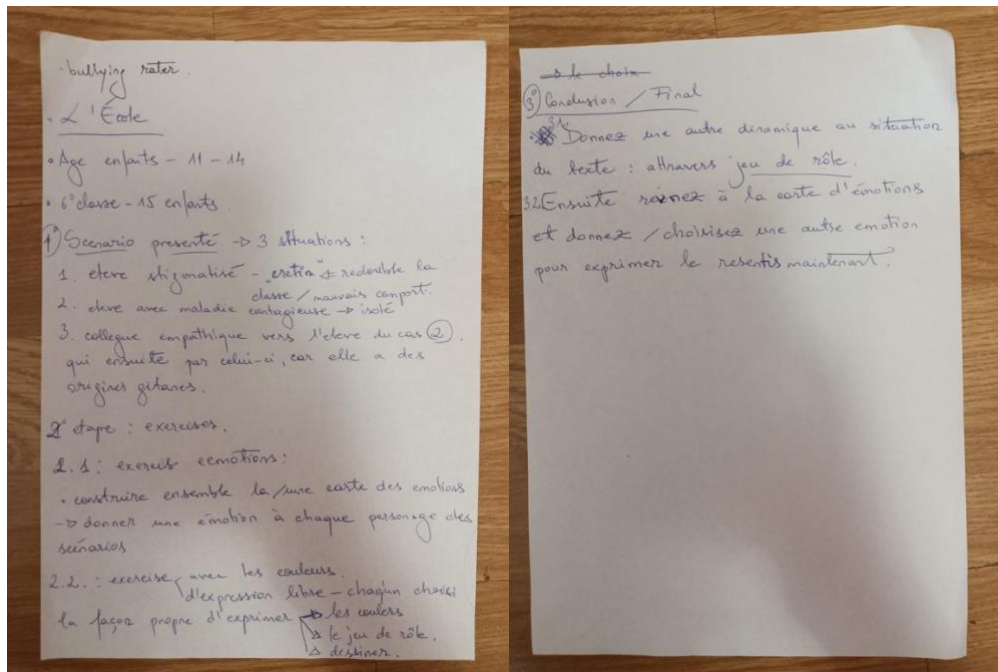 · bullying rater.
· L'École
• Age enfants - 11 - 14
• 6° classe - 15 enfants
1°) Scenario presenté → 3 situations :
1. eleve stigmatisé - "cretin" ± redouble la
classe / mauvais comport.
2. eleve avec maladie contagieuse → isolé
3. collegue empathique vers l'eleve du cas 2.
qui ensuite par celui-ci, car elle a des
origines gitanes.
2° etape : exercises.
2.1 : exercis eemotions :
• construire ensemble la/une carte des emotions
→ donner une émotion à chaque personage des
scénarios
2.2. : exercise avec les couleurs.
d'expression libre - chaqun choisi
la façon propre d'exprimer → les coulers
→ le jeu de rôle.
→ dessiner.
→ le choix
3°) Conclusion / Final
3.1. Donnez une autre dinamique au situation
du texte : attravers jeu de rôle.
3.2 Ensuite à la carte d'émotions
et donnez / choisisez une autre emotion
pour exprimer le resentis maintenant.